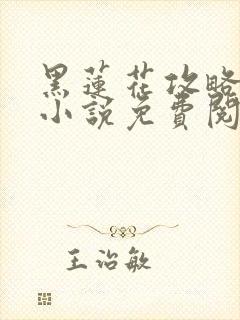 黑蓮花攻略
小說免費閱
王治敏